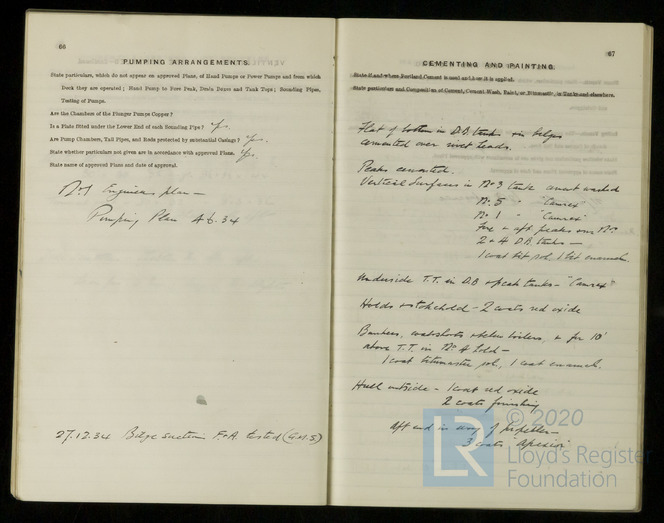 66
PUMPING ARRANGEMENTS.
State particulars, which do not appear on approved Plans, of Hand Pumps or Power Pumps and from which
Deck they are operated; Hand Pump to Fore Peak, Drain Doors and Tank Tops; Sounding Pipes,
Testing of Pumps.
Are the Chambers of the Plunger Pumps Copper?
Is a Flat fitted under the Lower End of each Sounding Pipe? Yes.
Are Pump Chambers, Tail Pipes, and Rods protected by substantial Casings? Yes.
State whether particulars not given are in accordance with approved Plans. Yes.
State name of approved Plans and date of approval.
No 1 Engineers plan —
Pumping Plan 4.6.34
27.12.34 Bilge suctions F&A tested
67
CEMENTING AND PAINTING.
State if and where Portland Cement is used and how it is applied.
State particulars and Composition of Cement, Cement Wash, Paint, or Bitumastic, in Tanks and elsewhere.
Flat of bottom in D.B. tanks & in bilges
cemented over rivet heads.
Peaks cemented.
Vertical Surfaces in No 3 tank cement washed
No 5 " "Camrex"
No 1 " "Camrex"
Fore & aft peaks No
2 & 4 D.B. tanks —
1 coat bit sol, 1 bit enamel.
Underside T.T. in D.B. & peak tanks — "Camrex"
Holds & stokehold — 2 coats red oxide
Bunkers, below boilers, & for 10'
above T.T. in No 4 hold —
1 coat bitumastic sol, 1 coat enamel.
Hull outside — 1 coat red oxide
2 coats finishing
Aft end in way of propeller —
3 coats
LR
© 2020
Lloyd's Register
Foundation